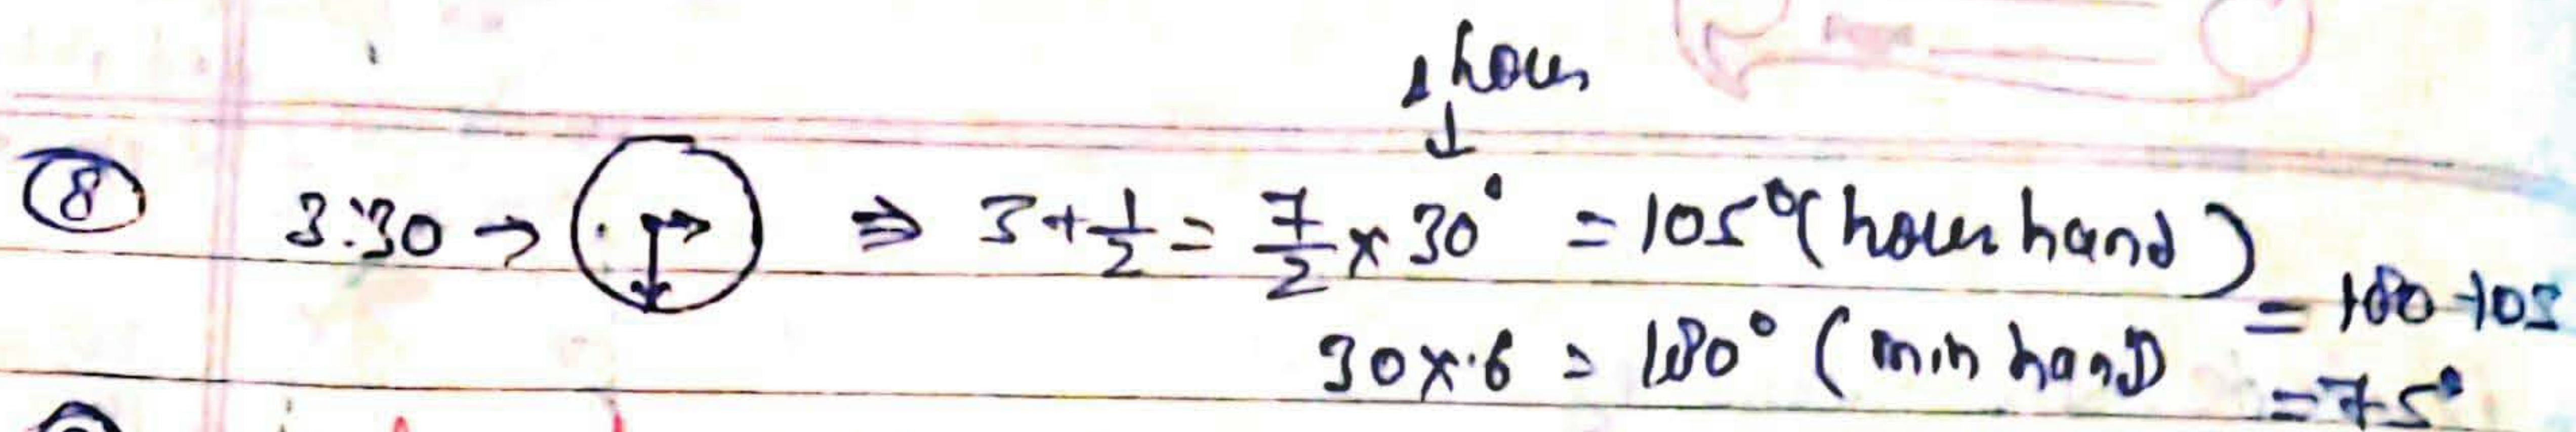 1 hour
↓
⑧ 3:30 → ⇒ 3 + 1/2 = 7/2 × 30° = 105° (hour hand)
30 × 6 = 180° (min hand)
= 180 - 105
= 75°